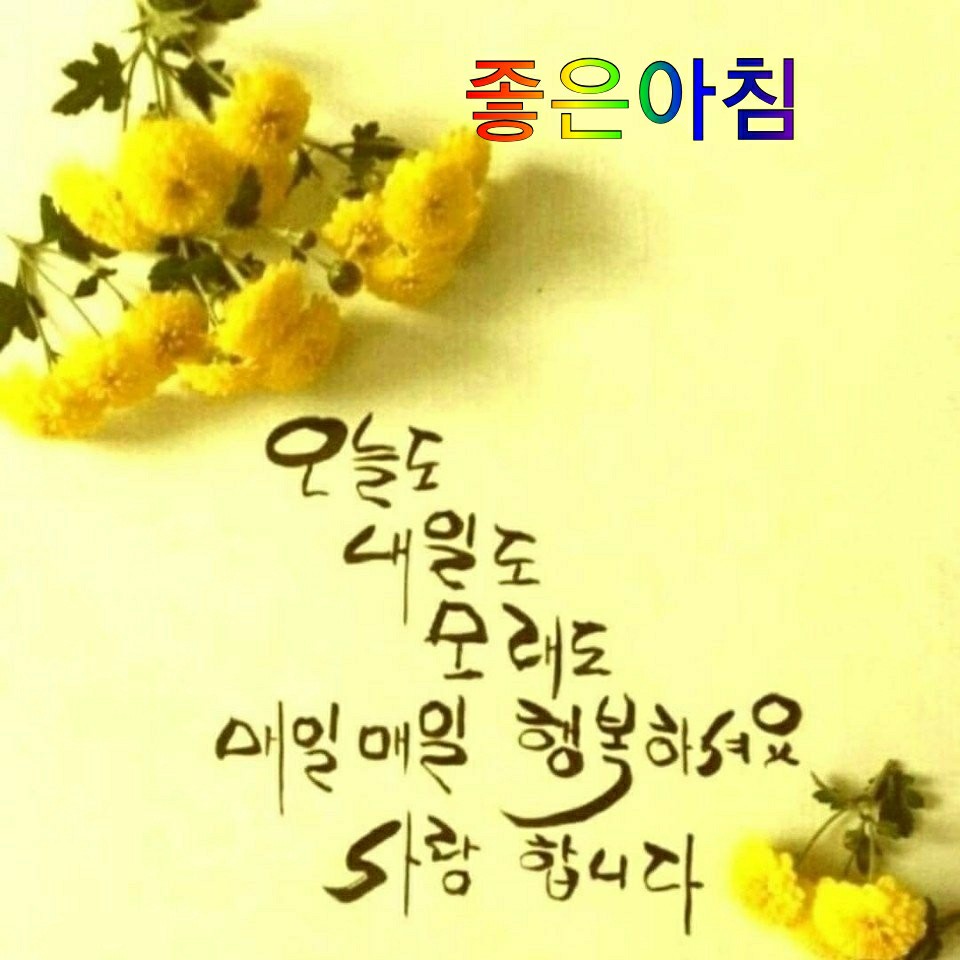 좋은아침
오늘도
내일도
모레도
매일매일 행복하셔요
사랑 합니다